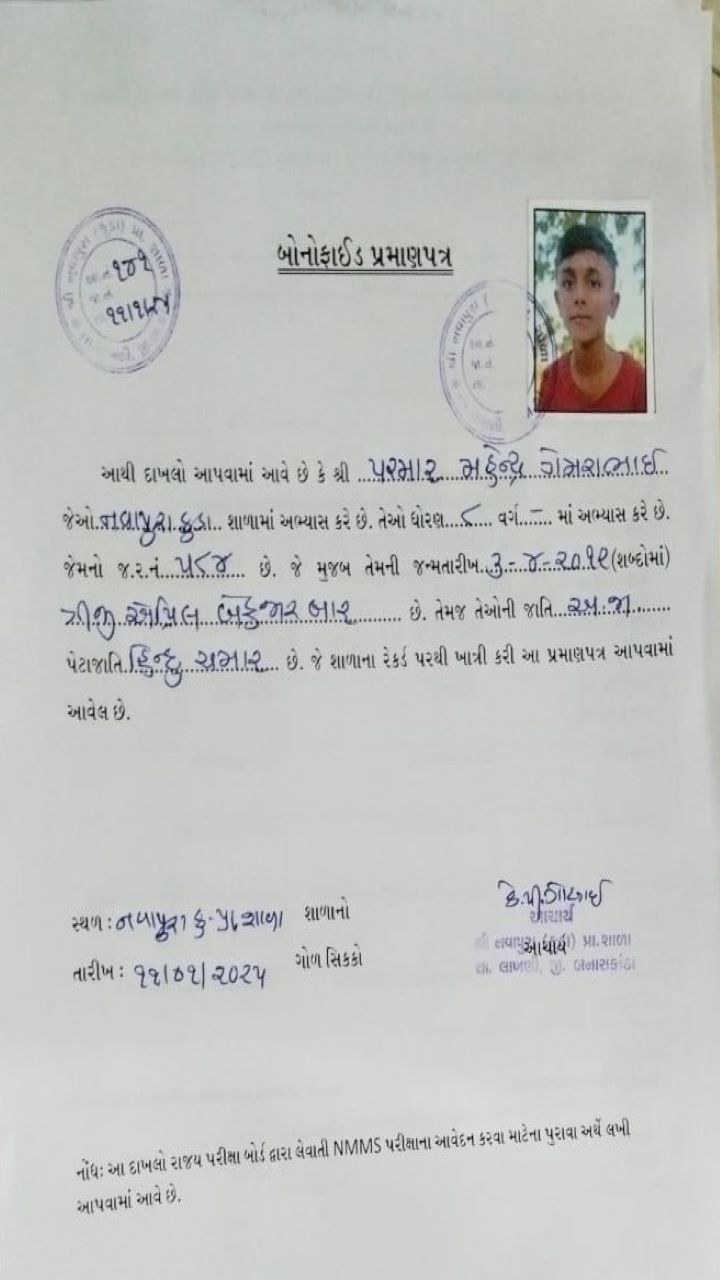 બોનોફાઈડ પ્રમાણપત્ર
૧૪૧
૧૧/૧/૨૫
આથી દાખલો આપવામાં આવે છે કે શ્રી પરમાર મહેન્દ્ર ગેમરાભાઈ
જેઓ નવાપુરા કુડા શાળામાં અભ્યાસ કરે છે. તેઓ ધોરણ ૮ વર્ગ – માં અભ્યાસ કરે છે.
જેમનો જ.ર.નં. ૫૮૪ છે. જે મુજબ તેમની જન્મતારીખ ૩-૪-૨૦૧૨ (શબ્દોમાં)
ત્રીજી એપ્રિલ બેહજાર બાર છે. તેમજ તેઓની જાતિ અ.જા
પેટાજાતિ હિન્દુ ચમાર છે. જે શાળાના રેકર્ડ પરથી ખાત્રી કરી આ પ્રમાણપત્ર આપવામાં
આવેલ છે.
સ્થળ: નવાપુરા કુ. પ્રા શાળા શાળાનો
તારીખ: ૧૧/૦૧/૨૦૨૫ ગોળ સિક્કો
આચાર્ય
શ્રી નવાપુરા (કુડા) પ્રા.શાળા
આચાર્ય
તા. લાખણી, જી. બનાસકાંઠા
નોંધ: આ દાખલો રાજય પરીક્ષા બોર્ડ દ્વારા લેવાતી NMMS પરીક્ષાના આવેદન કરવા માટેના પુરાવા અર્થે લખી
આપવામાં આવે છે.